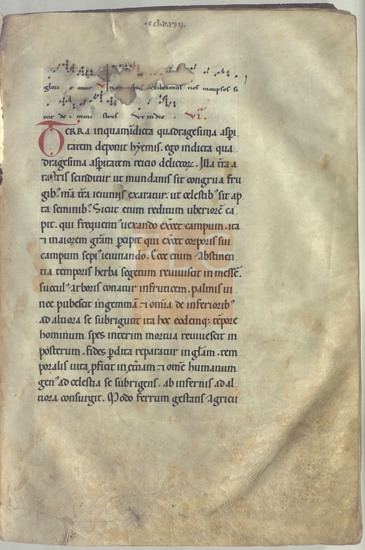 TERRA inquam indicta quadragesima aspi
tatem deponit hyemis. ego indicta qua
dragesima aspitatem reicio delictoꝝ. Illa tr̃a a
rastris scinditur ut mundanis sit congrua fru
gibꝰ. mã tr̃a ieiuniis exaratur. ut celestibꝰ sit ap
ta seminibꝰ. Sicut enim reditum uberiorẽ ca
pit. qui frequentiꝰ uexando exẽcet campum. ita
& maiorem grãm papit qui exẽcet corporis sui
campum sepiꝰ ieiunando. Ecce enim abstinen
tia temporis herba segetum reuiuescit in messẽ.
succulꝰ arboris conatur in fruticem. palmis ui
nee pubescit in gemmã. & omĩa de inferioribꝰ
ad altiora se subrigunt. ita hoc eodemq; tẽpore
hominum spes interim mortua reuiuescit in
posterum. fides pdita reparatur in glãm. tem
poralis uita pficit in et̃nam. & omẽ humanum
genꝰ ad celestia se subrigens. ab infernis ad al
tiora consurgit. Modo ferrum gestans agricu